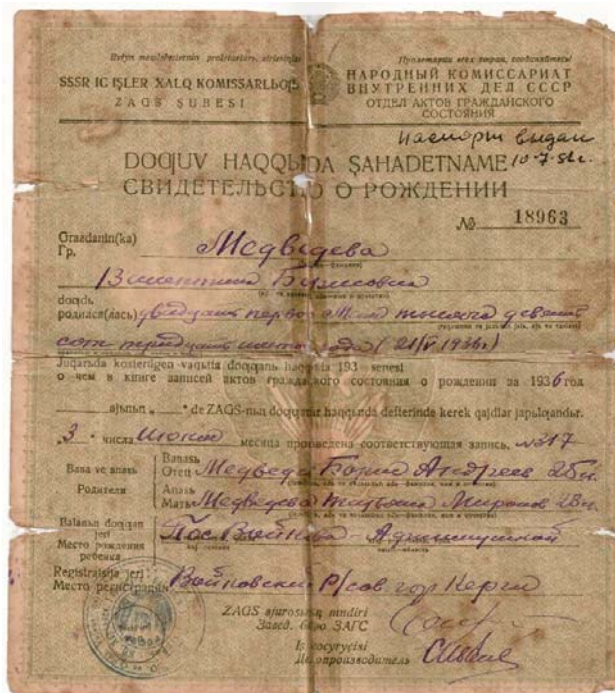 SSSR IC IŞLER XALQ KOMISSARLЬQЬ
ZAGS ŞUBESI
Пролетарии всех стран, соединяйтесь!
НАРОДНЫЙ КОМИССАРИАТ
ВНУТРЕННИХ ДЕЛ СССР
ОТДЕЛ АКТОВ ГРАЖДАНСКОГО
СОСТОЯНИЯ
Паспорт выдан
10.7.52г.
DOQŅUV HAQQЬDA ŞAHADETNAME
СВИДЕТЕЛЬСТВО О РОЖДЕНИИ
№ 18963
Grazdanin(ka)
Гр. Медведева
Борисовна
doqdь
родился(лась) двадцать первого Мая тысяча девять
сот тридцать шестого года (21/V 1936г)
Juqarьda kosterilgen vaqьtta doqqanь haqqьnda 193 senesi
о чем в книге записей актов гражданского состояния о рождении за 1936 год
ajьnьn „ “ de ZAGS-nьn doqqanlar haqqьnda defterinde kerek qajdlar japьlqandьr.
3 числа Июня месяца произведена соответствующая запись. №317
Baba ve anasь
Родители
Babasь
Отец Медведев Борис Андреев 25л.
Anasь
Мать Медведева Татьяна Миронов 23л.
Balanьn doqqan
jeri
Место рождения
ребенка
Пос. Войкова - Аджимушкай
Registratsija jeri
Место регистрации Войковский Р/сов. гор. Керчи
ZAGS bjurosьnьn mudiri
Завед. бюро ЗАГС
Iş cүrytycisi
Делопроизводитель